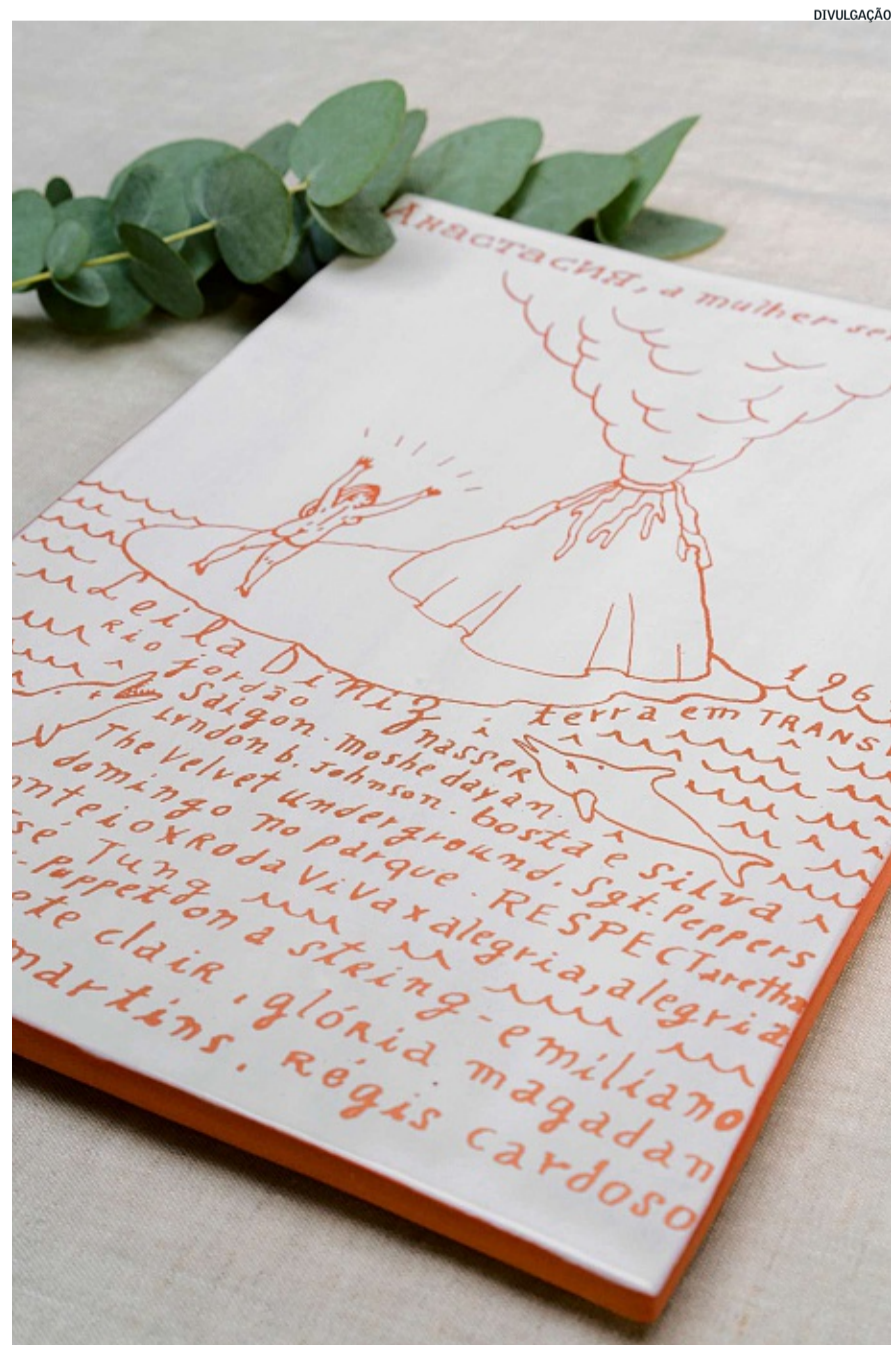 DIVULGAÇÃO
Анастасия, a mulher
196
Leila Diniz terra em TRANS
rio jordão nasser
Saigon. moshe dayan.
Lyndon b. Johnson. bosta e Silva
The Velvet underground. Sgt. Peppers
domingo no parque. RESPECT aretha
ponteio x Roda viva x alegria, alegria
sé Tung
Puppet on a string - emiliano
ete clair, glória magadan
martins. Régis cardoso